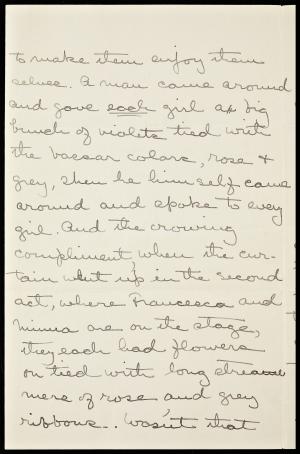 to make them enjoy them
selves. A man came around
and gave each girl a big
bunch of violets tied with
the Vassar colors, rose &
grey, then he himself came
around and spoke to every
girl. And the crowing
compliment when the cur-
tain went up in the second
act, where Francesca and
Minna are on the stage,
they each had flowers
on tied with long strea
mers of rose and grey
ribbons.. Wasn't that